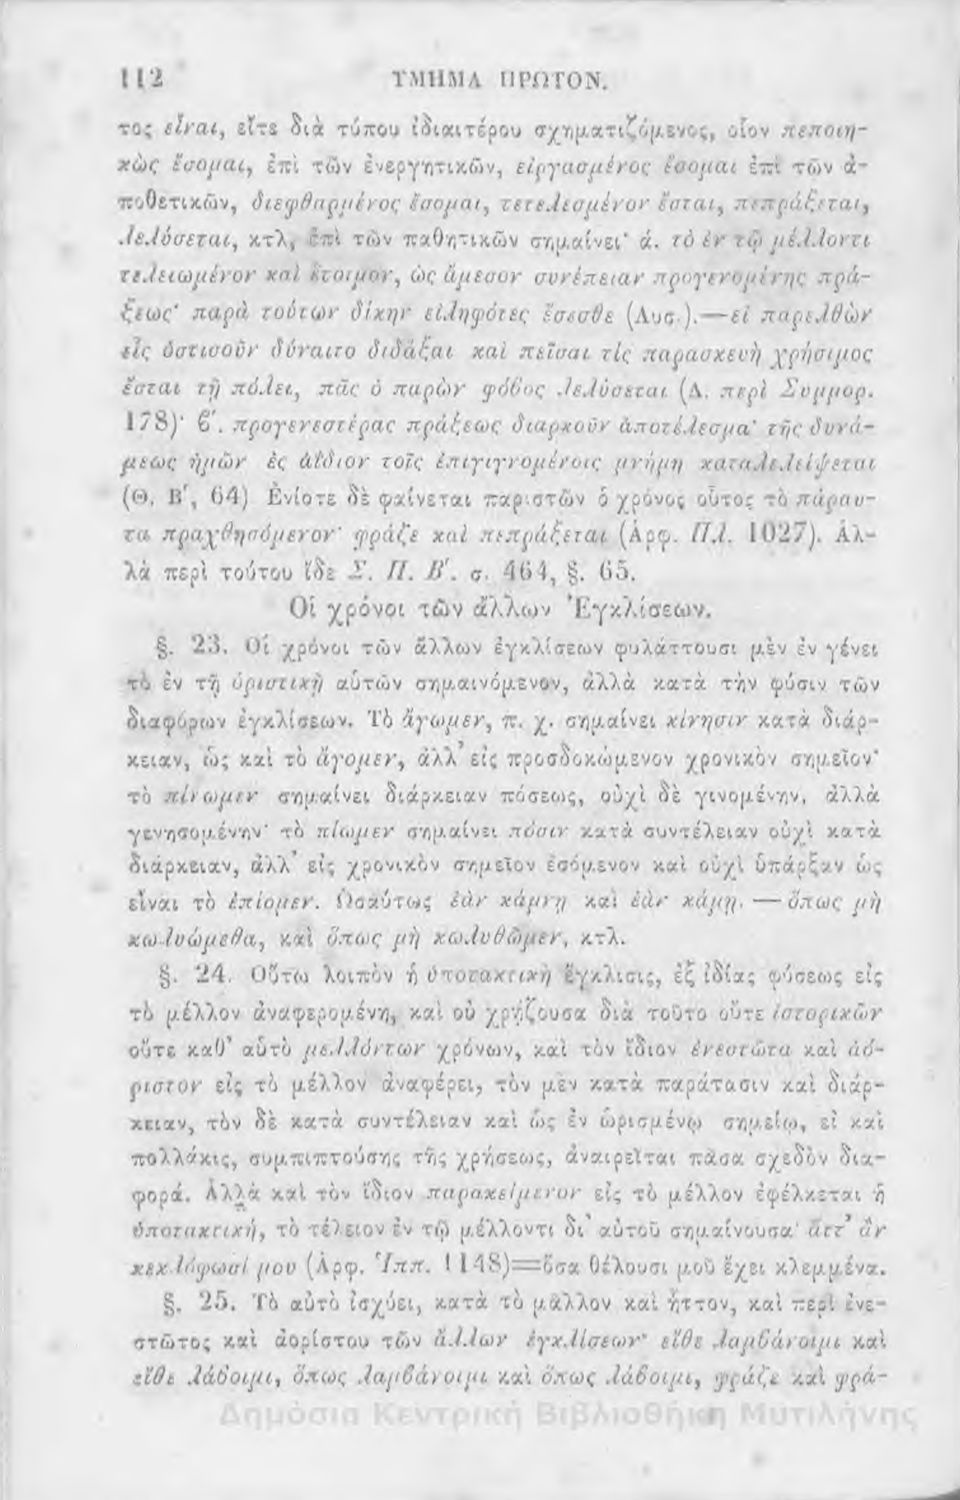 112 ΤΜΗΜΑ ΠΡΩΤΟΝ.
τος εἶναι, εἴτε διὰ τύπου ἰδιαιτέρου σχηματιζόμενος, οἷον πεποιη-
κὼς ἔσομαι, ἐπὶ τῶν ἐνεργητικῶν, εἰργασμένος ἔσομαι ἐπὶ τῶν ἀ-
ποθετικῶν, διεφθαρμένος ἔσομαι, τετελεσμένον ἔσται, πεπράξεται,
λελύσεται, κτλ, ἐπὶ τῶν παθητικῶν σημαίνει· ά. τὸ ἐν τῷ μέλλοντι
τελειωμένον καὶ ἕτοιμον, ὡς ἄμεσον συνέπειαν προγενομένης πρά-
ξεως· παρὰ τούτων δίκην εἰληφότες ἔσεσθε (Λυσ.).—εἰ παρελθὼν
εἷς ὁστισοῦν δύναιτο διδάξαι καὶ πεῖσαι τίς παρασκευὴ χρήσιμος
ἔσται τῇ πόλει, πᾶς ὁ παρὼν φόβος λελύσεται (Δ. περὶ Συμμορ.
178)· ϐ'. προγενεστέρας πράξεως διαρκοῦν ἀποτέλεσμα· τῆς δυνά-
μεως ἡμῶν ἐς ἀΐδιον τοῖς ἐπιγιγνομένοις μνήμη καταλελείψεται
(Θ. Β', 64) Ἐνίοτε δὲ φαίνεται παριστῶν ὁ χρόνος οὗτος τὸ πάραυ-
τα πραχθησόμενον· φράζε καὶ πεπράξεται (Ἀρφ. Πλ. 1027). Ἀλ-
λὰ περὶ τούτου ἴδε Σ. Π. Β'. σ. 464, §. 65.
Οἱ χρόνοι τῶν ἄλλων Ἐγκλίσεων.
§. 23. Οἱ χρόνοι τῶν ἄλλων ἐγκλίσεων φυλάττουσι μὲν ἐν γένει
τὸ ἐν τῇ ὁριστικῇ αὐτῶν σημαινόμενον, ἀλλὰ κατὰ τὴν φύσιν τῶν
διαφόρων ἐγκλίσεων. Τὸ ἄγωμεν, π. χ. σημαίνει κίνησιν κατὰ διάρ-
κειαν, ὡς καὶ τὸ ἄγομεν, ἀλλ' εἰς προσδοκώμενον χρονικὸν σημεῖον·
τὸ πίνωμεν σημαίνει διάρκειαν πόσεως, οὐχὶ δὲ γινομένην, ἀλλὰ
γενησομένην· τὸ πίωμεν σημαίνει πόσιν κατὰ συντέλειαν οὐχὶ κατὰ
διάρκειαν, ἀλλ' εἰς χρονικὸν σημεῖον ἐσόμενον καὶ οὐχὶ ὑπάρξαν ὡς
εἶναι τὸ ἐπίομεν. Ὡσαύτως ἐὰν κάμνῃ καὶ ἐὰν κάμῃ. — ὅπως μὴ
κωλυώμεθα, καὶ ὅπως μὴ κωλυθῶμεν, κτλ.
§. 24. Οὕτω λοιπὸν ἡ ὑποτακτικὴ ἔγκλισις, ἐξ ἰδίας φύσεως εἰς
τὸ μέλλον ἀναφερομένη, καὶ οὐ χρῄζουσα διὰ τοῦτο οὔτε ἱστορικῶν
οὔτε καθ' αὑτὸ μελλόντων χρόνων, καὶ τὸν ἴδιον ἐνεστῶτα καὶ ἀό-
ριστον εἰς τὸ μέλλον ἀναφέρει, τὸν μὲν κατὰ παράτασιν καὶ διάρ-
κειαν, τὸν δὲ κατὰ συντέλειαν καὶ ὡς ἐν ὡρισμένῳ σημείῳ, εἰ καὶ
πολλάκις, συμπιπτούσης τῆς χρήσεως, ἀναιρεῖται πᾶσα σχεδὸν δια-
φορά. Ἀλλὰ καὶ τὸν ἴδιον παρακείμενον εἰς τὸ μέλλον ἐφέλκεται ἡ
ὑποτακτική, τὸ τέλειον ἐν τῷ μέλλοντι δι' αὐτοῦ σημαίνουσα· ἅττ' ἂν
κεκλόφωσί μου (Ἀρφ. Ἱππ. 1148)=ὅσα θέλουσι μοῦ ἔχει κλεμμένα.
§. 25. Τὸ αὐτὸ ἰσχύει, κατὰ τὸ μᾶλλον καὶ ἧττον, καὶ περὶ ἐνε-
στῶτος καὶ ἀορίστου τῶν ἄλλων ἐγκλίσεων· εἴθε λαμβάνοιμι καὶ
εἴθε λάβοιμι, ὅπως λαμβάνοιμι καὶ ὅπως λάβοιμι, φράζε καὶ φρά-
Δημόσια Κεντρική Βιβλιοθήκη Μυτιλήνης